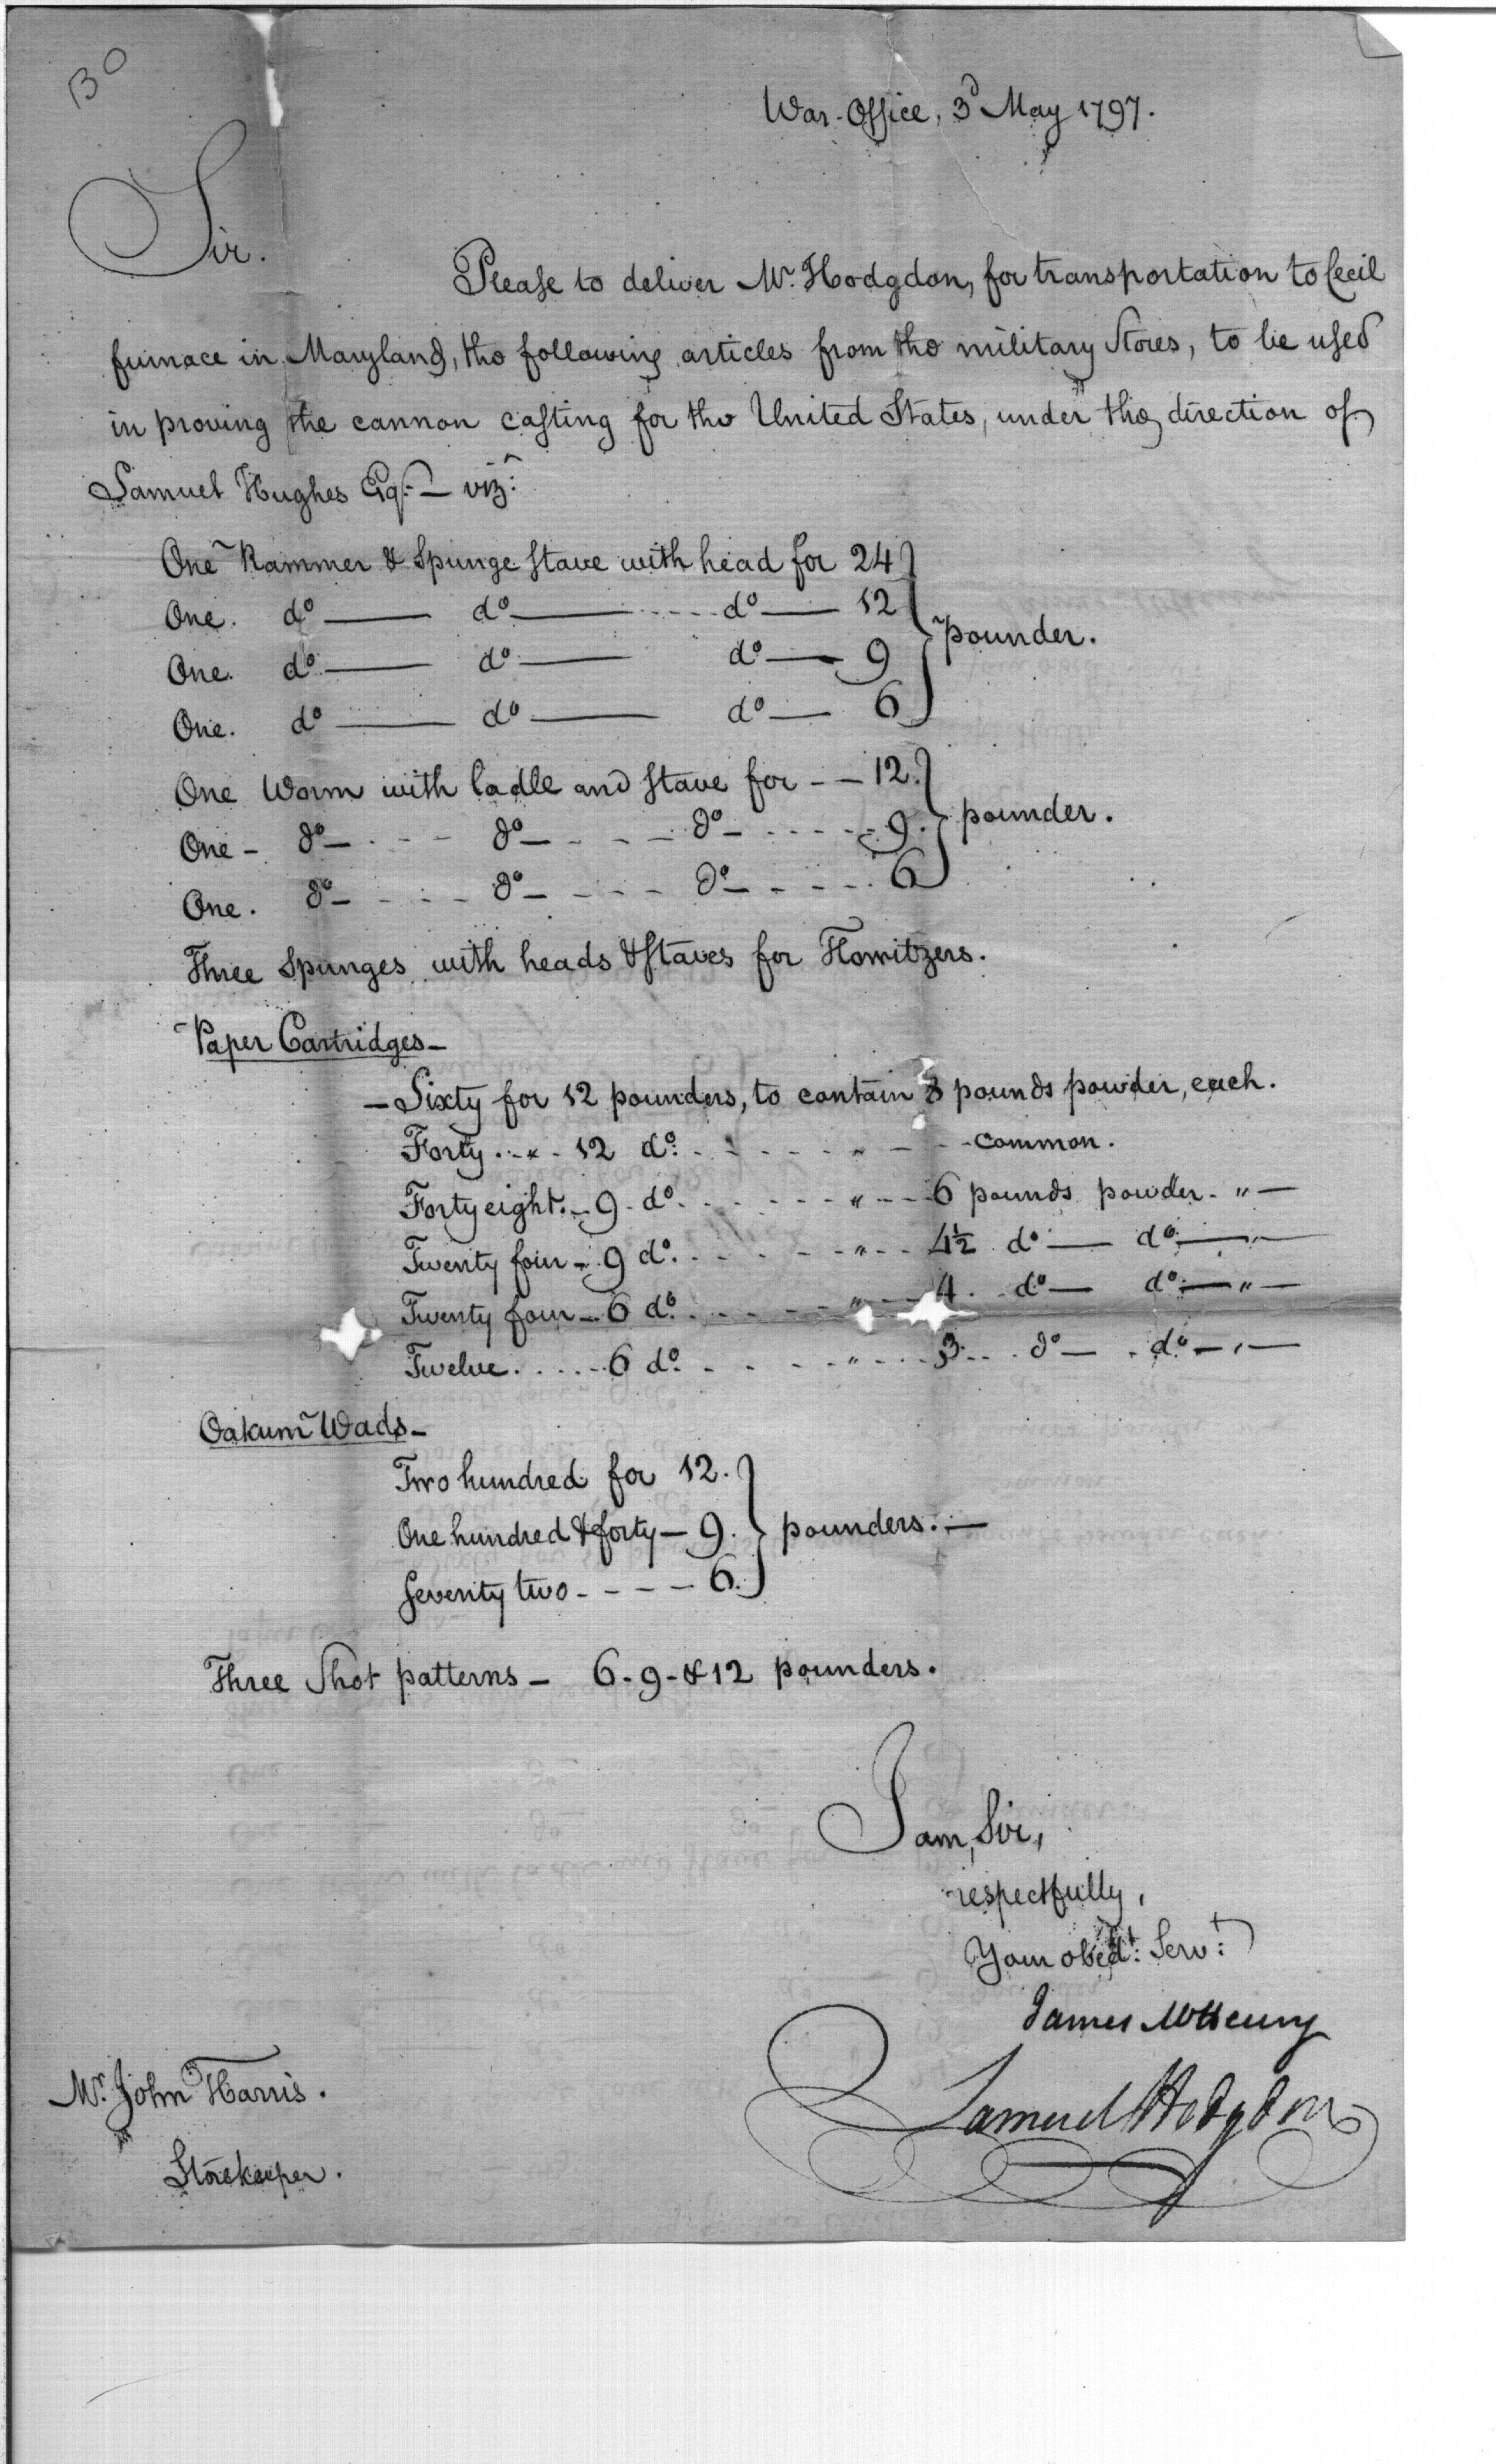 BO
War-Office, 3d May 1797.
Sir.
Please to deliver Mr. Hodgdon, for transportation to Cecil
furnace in Maryland, the following articles from the military Stores, to be used
in proving the cannon casting for the United States, under the direction of
Samuel Hughes Esqr. — vizt:
One Rammer & Spunge stave with head for 24
One. do — do — do — 12
One. do — do — do — 9
One. do — do — do — 6
pounder.
One Worm with ladle and stave for - - 12.
One - do - do - do - 9.
One. do - do - do - 6
pounder.
Three Spunges with heads & staves for Howitzers.
Paper Cartridges -
- Sixty for 12 pounders, to contain 8 pounds powder, each.
Forty . " . 12 do. " - common.
Forty eight. - 9 do. " - 6 pounds powder. " —
Twenty four - 9 do. " - 4½ do — do — " —
Twenty four - 6 do. " - 4. do — do — " —
Twelve. - 6 do. " - 3 do — do — " —
Oakum Wads -
Two hundred for 12.
One hundred & forty — 9.
Seventy two - - - - 6.
pounders. —
Three Shot patterns - 6 - 9 - & 12 pounders.
I am, Sir,
respectfully,
Your obedt: Servt:
James McHenry
Samuel Hodgdon
Mr. John Harris.
Storekeeper.